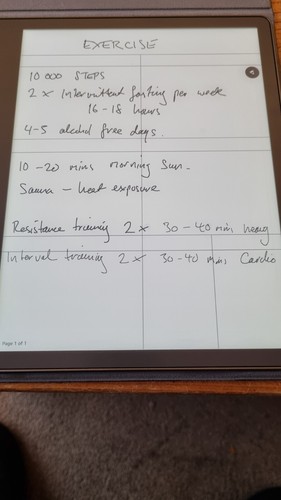 EXERCISE
10 000 STEPS
2 x Intermittent fasting per week
16 - 18 hours
4-5 alcohol free days.
10 - 20 mins morning Sun.
Sauna - heat exposure
Resistance training 2 x 30 - 40 min heavy
Interval training 2 x 30-40 mins Cardio
Page 1 of 1